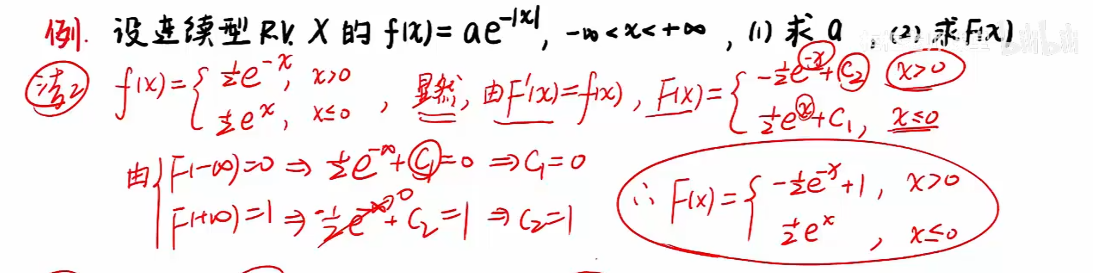 例. 设连续型 R.V. X 的 f(x)=ae^{-|x|}, -∞<x<+∞, (1) 求 a, (2) 求F(x)
法2 f(x)={ ½e^{-x}, x>0 ; ½e^{x}, x≤0 , 显然, 由F'(x)=f(x), F(x)={ -½e^{-x}+C₂ x>0 ; ½e^{x}+C₁, x≤0
由{ F(-∞)=0 ⇒ ½e^{-∞}+C₁=0 ⇒C₁=0
F(+∞)=1 ⇒ -½e^{-∞}→0 +C₂=1 ⇒C₂=1
∴ F(x)={ -½e^{-x}+1, x>0 ; ½e^{x}, x≤0
bilibili